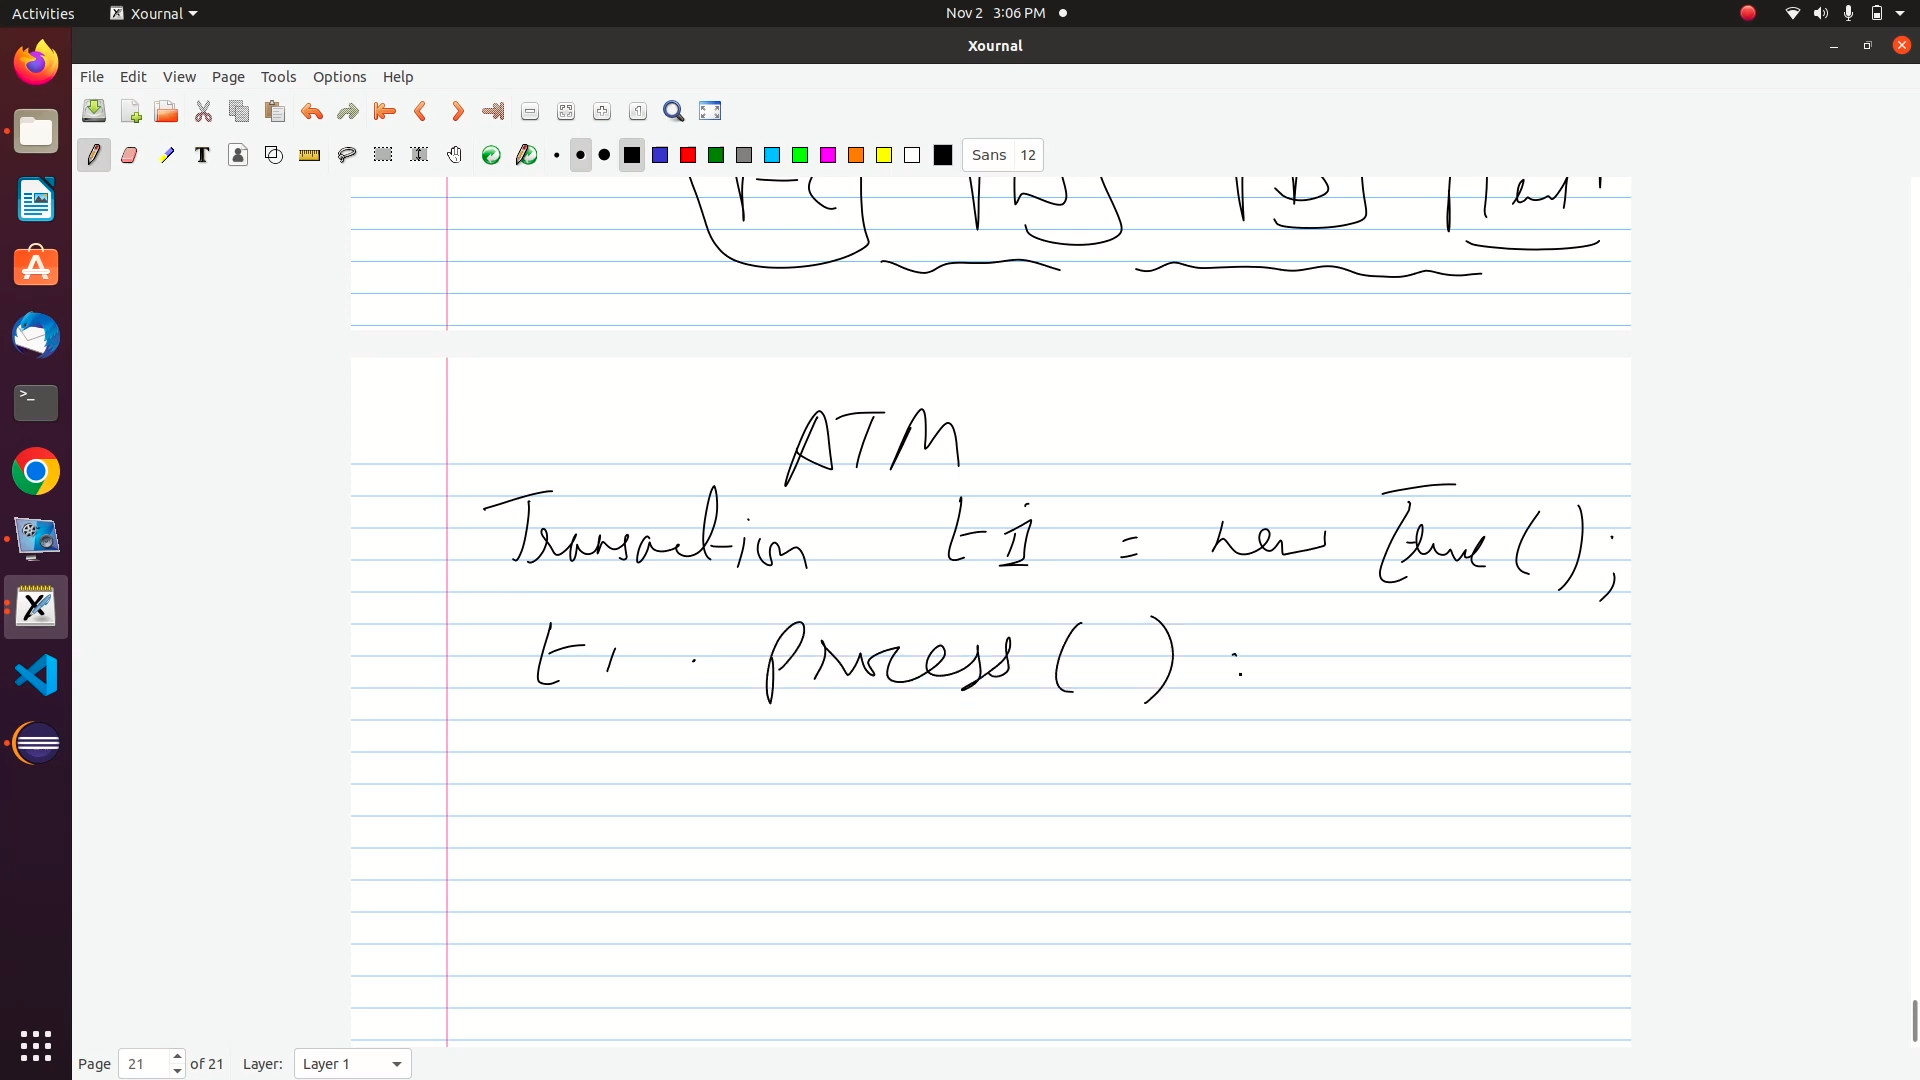 Activities Xournal Nov 2 3:06 PM
Xournal
File Edit View Page Tools Options Help
T Sans 12
ATM
Transaction t1 = new
t1 . process ( ) :
Page 21 of 21 Layer: Layer 1